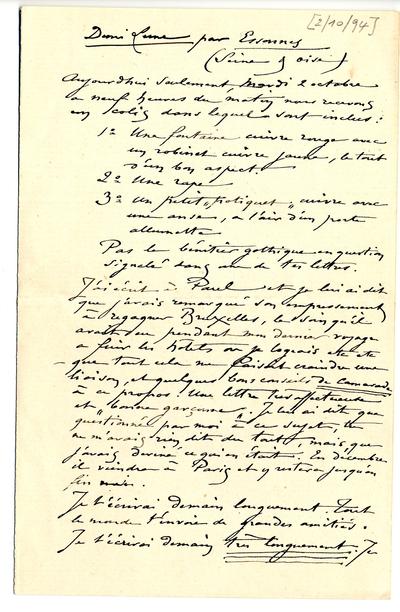 [2/10/94]
Demi Lune par Essonnes
(Seine & Oise)
Aujourdhui seulement, Mardi 2 octobre
a neuf heures du matin nous recevons
un colis dans lequel sont inclus :
1° Une fontaine cuivre rouge avec
un robinet cuivre jaune, le tout
d'un bon aspect
2° Une rape
3° un petit "potiquet" cuivre avec
une anse, a l'air d'un porte
allumette
Pas le bénitier gothique en question
signalé dans une de tes lettres.
J'ai écrit à Paul et je lui ai dit
que j'avais remarqué son empressement
à regagner Bruxelles, le soin qu'il
avait eu pendant mon dernier voyage
a fuir les hotels ou je logeais etc etc
- que tout cela me faisait craindre une
liaison, et quelques bons conseils de camarade
à ce propos. Une lettre très affectueuse
et "bonne garçonne". Je lui ai dit que
questionné par moi à ce sujet, tu
ne m'avais rien dit du tout, mais que
j'avais deviné ce qui en était. En décembre
il viendra à Paris et y restera jusqu'en
fin mars.
Je t'écrirai demain longuement. Tout
le monde t'envoie de grandes amitiés.
Je t'écrirai demain très longuement. Je